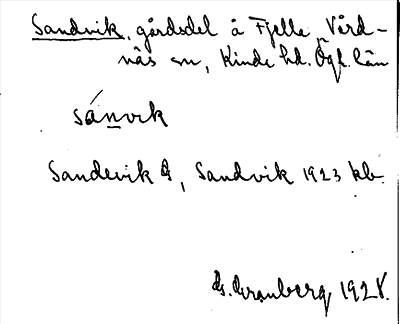 Sandvik, gårdsdel å Fjelle, Vård-
näs sn, Kinda hd. Ögl. län
sánvik
Sandevik G, Sandvik 1923 kb.
G. Granberg 1928.